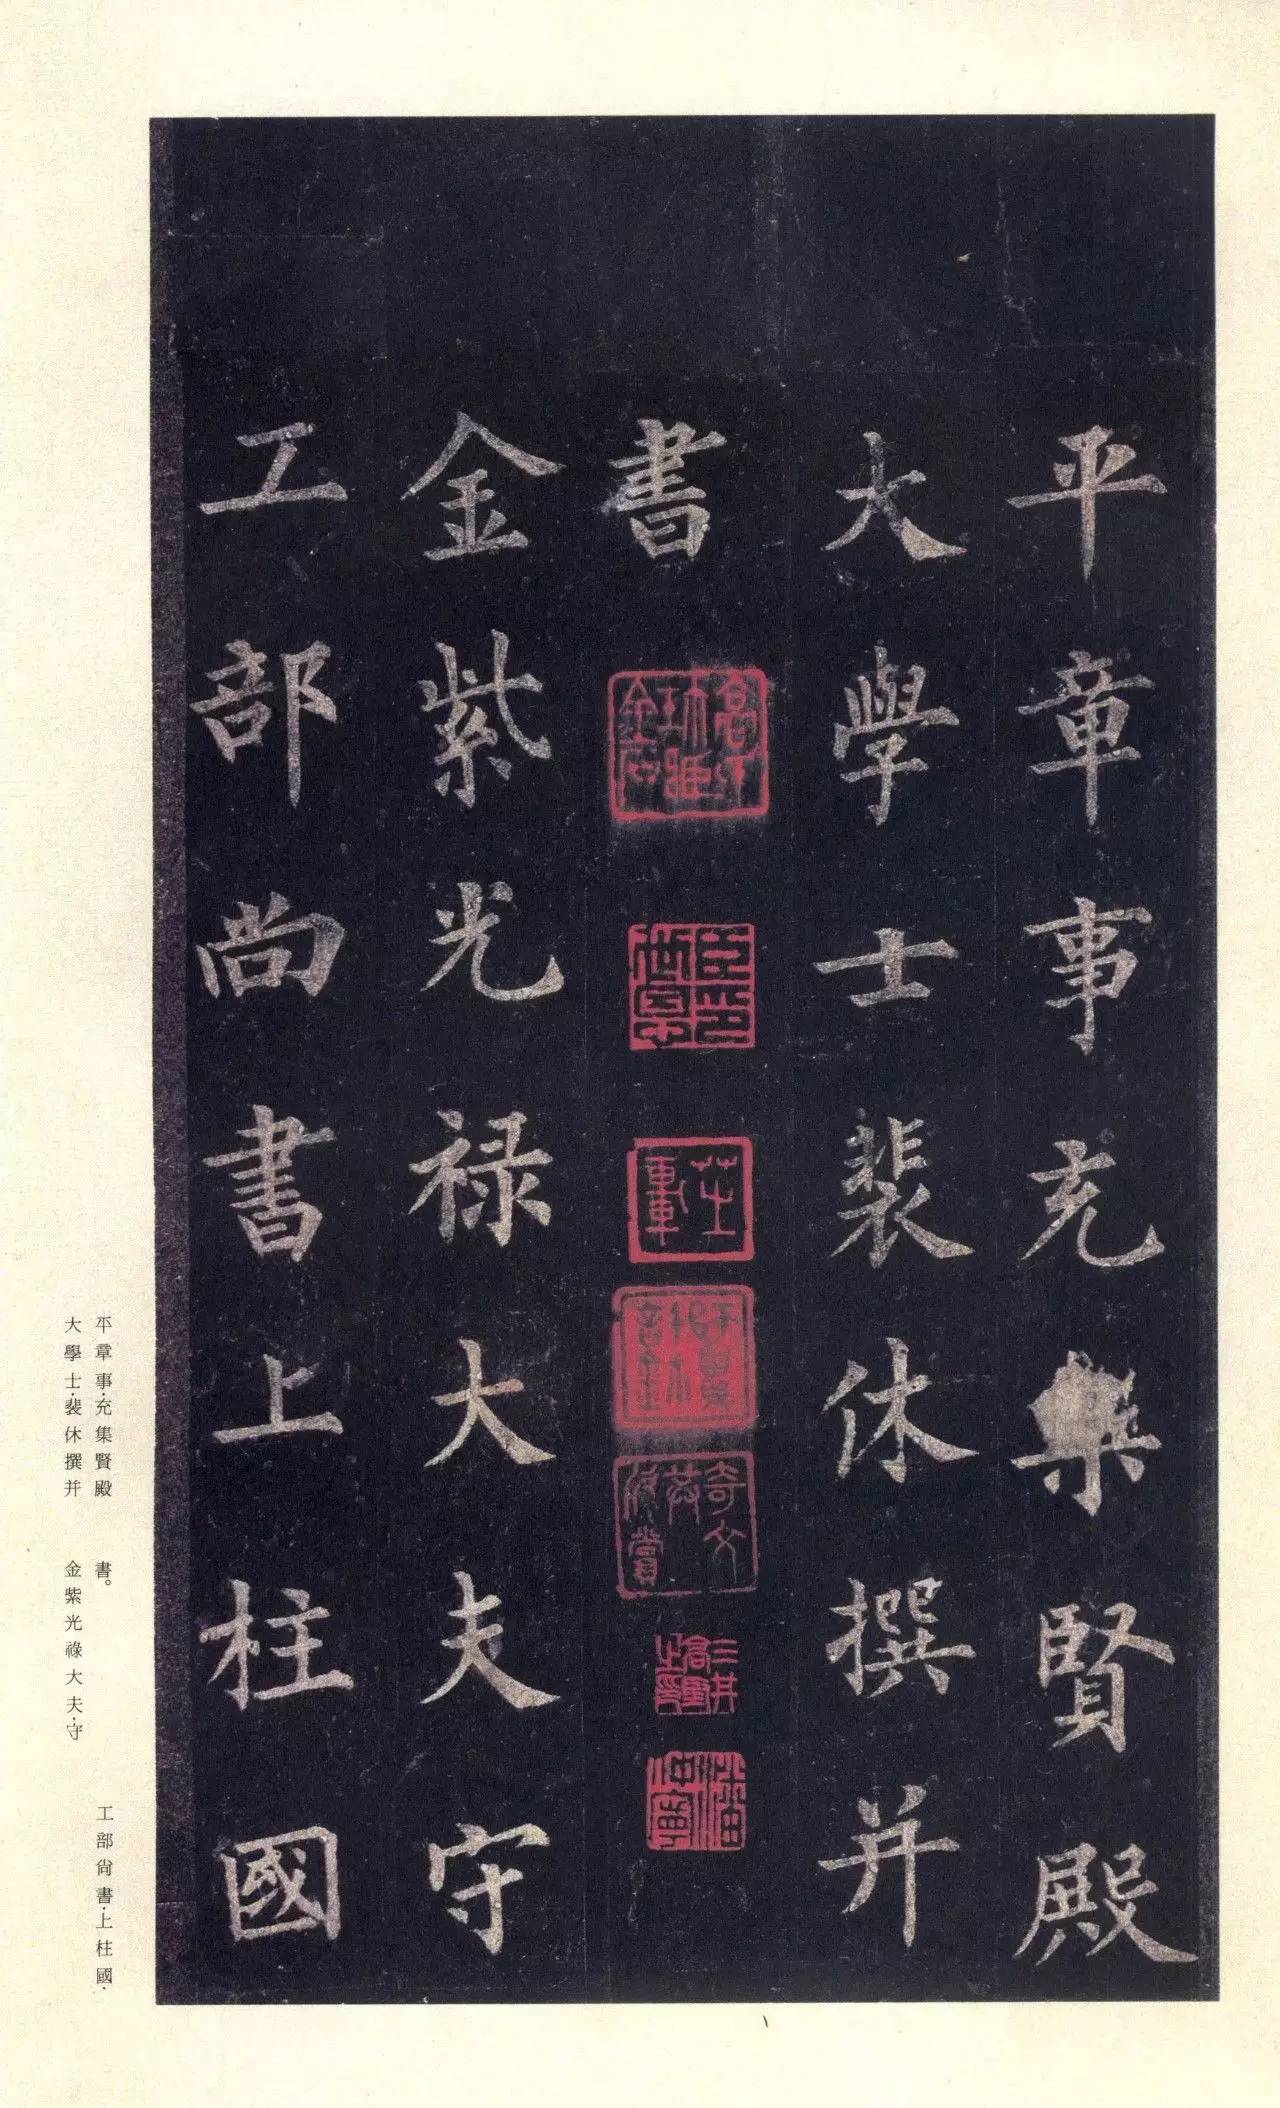 平章事充集賢殿
大學士裴休撰并
書
金紫光禄大夫守
工部尚書上柱國
平章事·充集賢殿
大學士·裴休撰并
書。
金紫光祿大夫·守
工部尚書·上柱國·